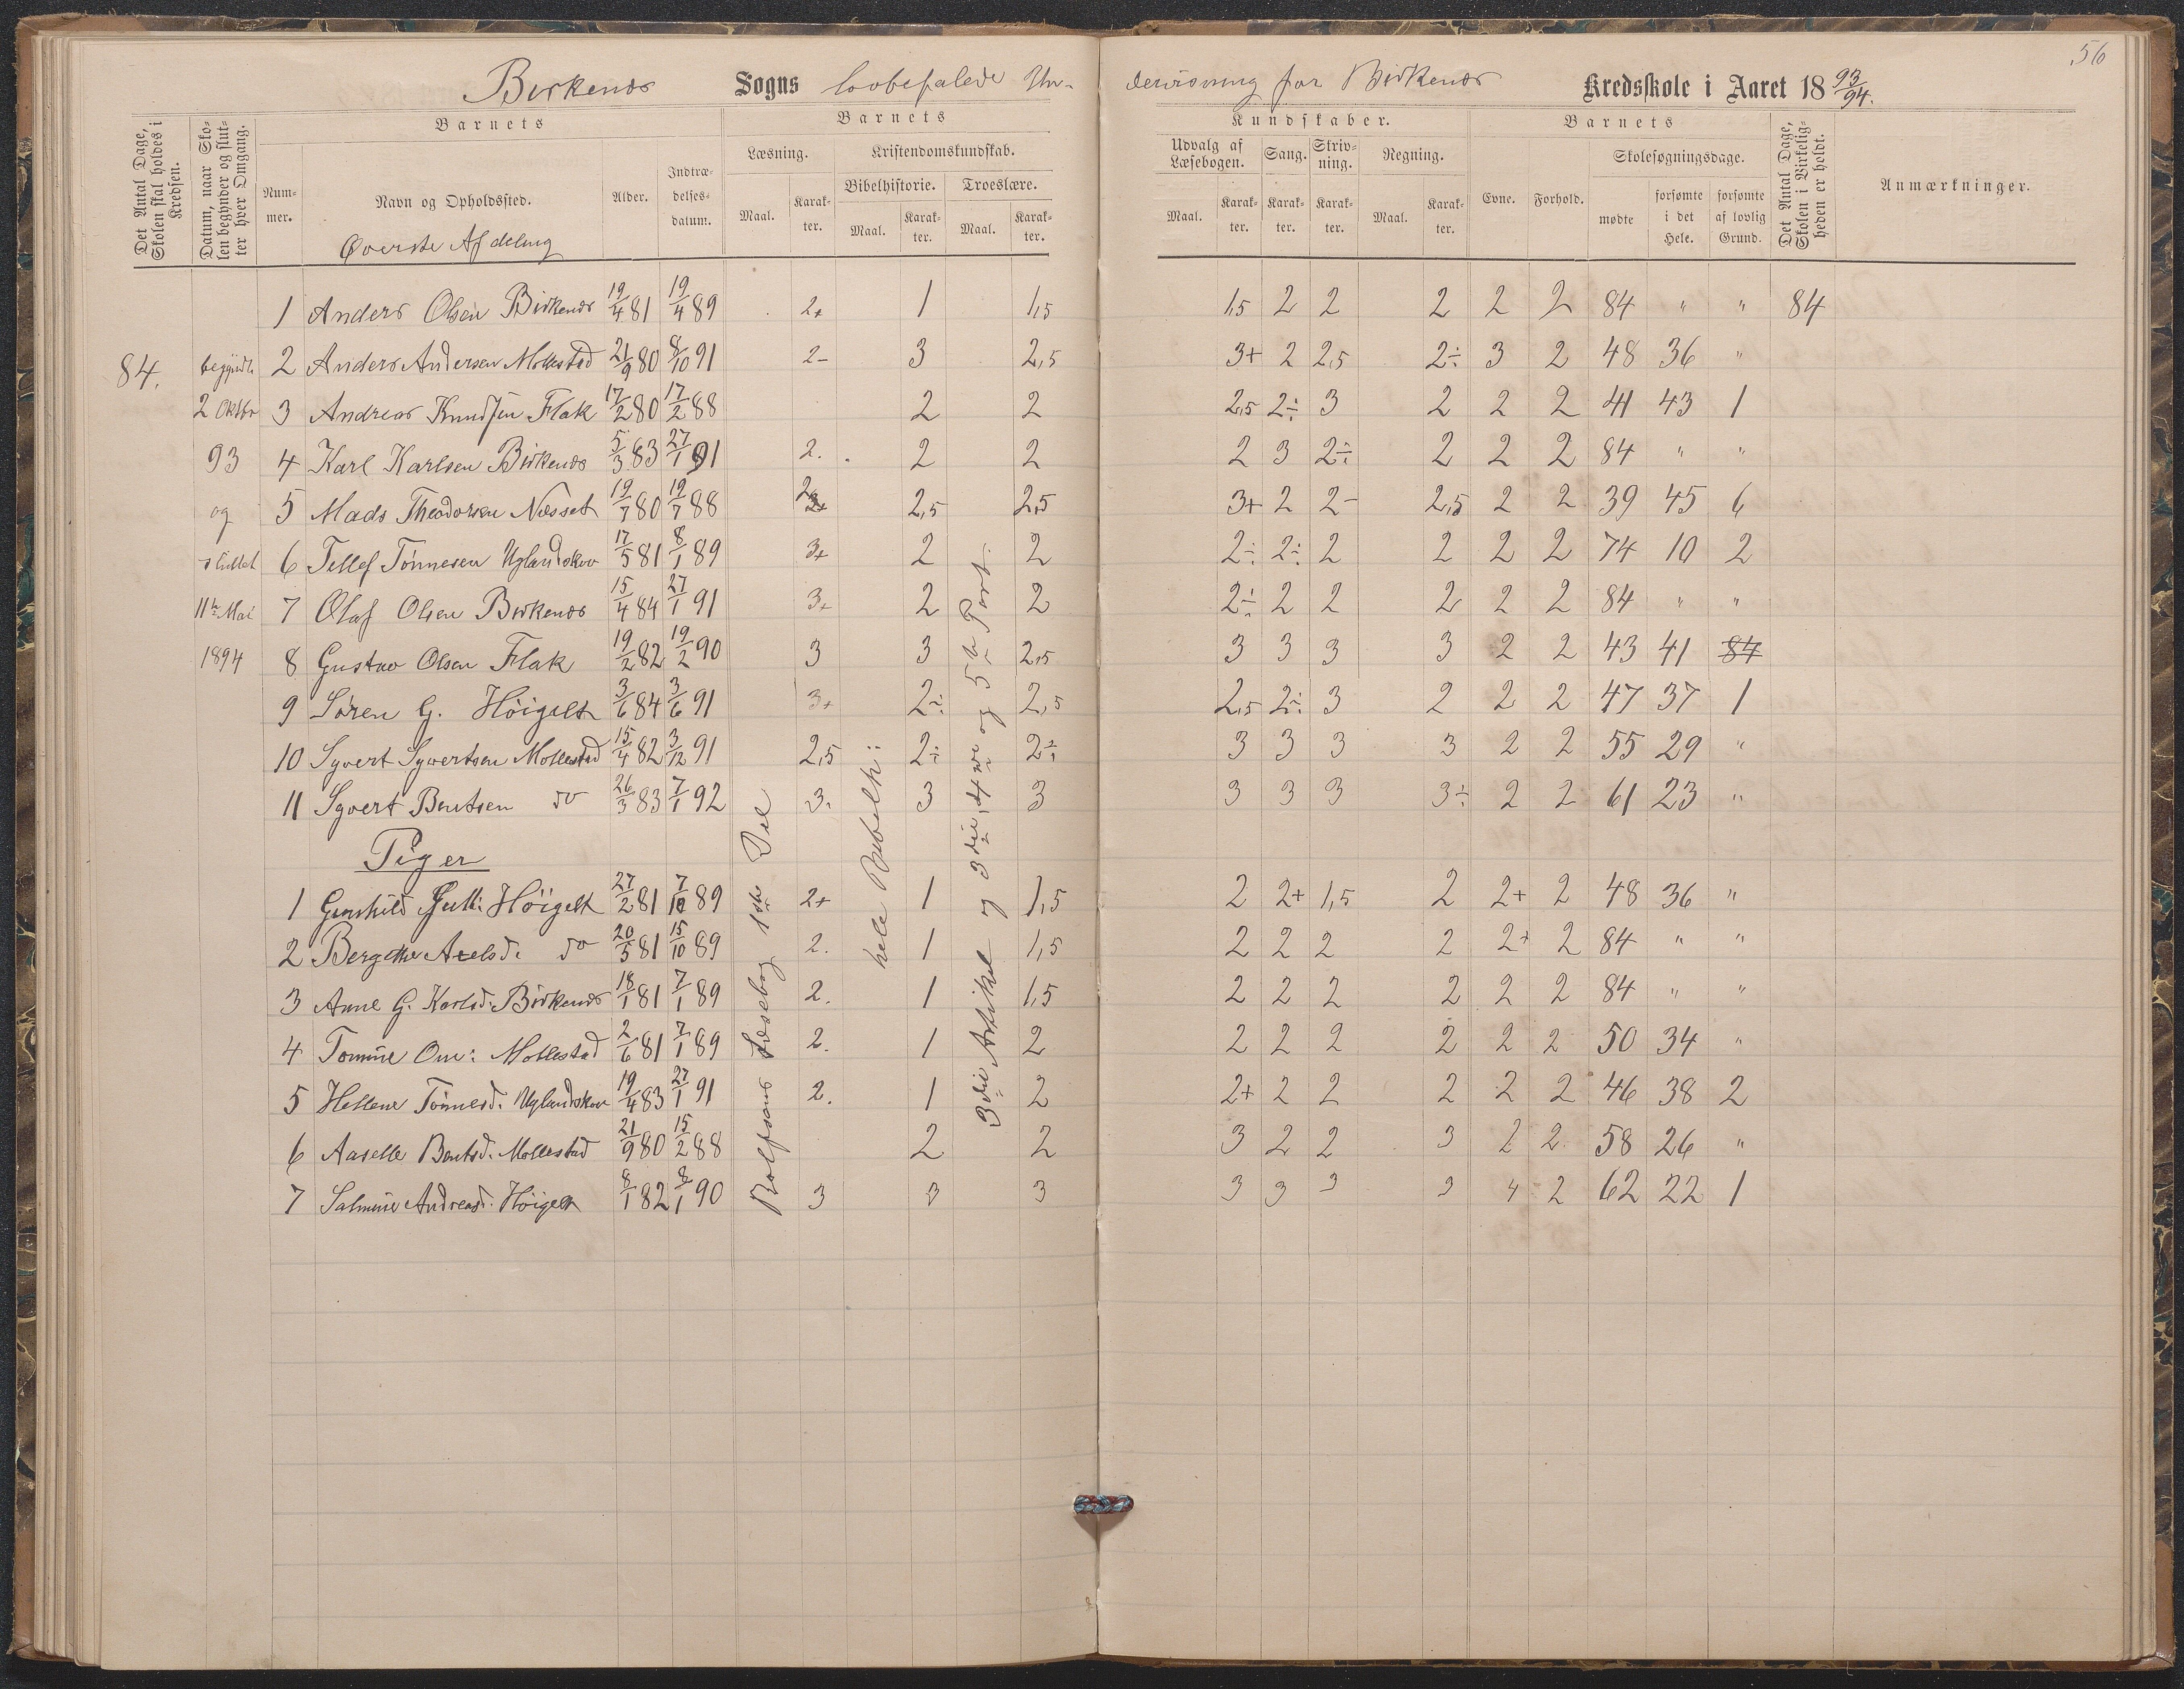 56
Birkenes Sogns lovbefalede Un- dervisning for Birkenes Kredsskole i Aaret 18 93/94.
Barnets Barnets Kundskaber. Barnets
Det Antal Dage, Skolen skal holdes i Kredsen.
Datum, naar Skolen begynder og slutter hver Omgang.
Nummer. Navn og Opholdssted. Alder. Indtrædelsesdatum.
Læsning. Maal. Karakter.
Kristendomskundskab. Bibelhistorie. Maal. Karakter. Troeslære. Maal. Karakter.
Udvalg af Læsebogen. Maal. Karakter. Sang. Karakter. Skrivning. Karakter. Regning. Maal. Karakter.
Evne. Forhold. Skolesøgningsdage. mødte forsømte i det Hele. forsømte af lovlig Grund.
Det Antal Dage, Skolen i Virkeligheden er holdt.
Anmærkninger.
Øverste Afdeling
1 Anders Olsen Birkenes 19/4 81 19/4 89 2+ 1 1,5 1,5 2 2 2 2 2 84 " " 84
84. begyndte 2 Anders Andersen Mollestad 21/9 80 8/10 91 2- 3 2,5 3+ 2 2,5 2÷ 3 2 48 36 "
2 Oktbr 3 Andreas Knudsen Flak 17/2 80 17/2 88 2 2 2,5 2÷ 3 2 2 2 41 43 1
93 4 Karl Karlsen Birkenes 5/3 83 27/1 91 2. 2 2 2 3 2÷ 2 2 2 84 " "
og 5 Mads Theodorsen Næsset 19/7 80 19/7 88 2+ 2,5 2,5 3+ 2 2- 2,5 2 2 39 45 6
sluttet 6 Tellef Tønnesen Uglandskov 17/5 81 8/1 89 3+ 2 2 2÷ 2÷ 2 2 2 2 74 10 2
11te Mai 7 Olaf Olsen Birkenes 15/4 84 27/1 91 3+ 2 2 2÷ 2 2 2 2 2 84 " "
1894 8 Gustav Olsen Flak 19/2 82 19/2 90 3 3 2,5 3 3 3 3 2 2 43 41 84
9 Søren G. Höigelt 3/6 84 3/6 91 3+ 2÷ 2,5 2,5 2÷ 3 2 2 2 47 37 1
10 Syvert Syvertsen Mollestad 15/4 82 3/12 91 2,5 2÷ 2÷ 3 3 3 3 2 2 55 29 "
11 Syvert Bentsen do 26/3 83 7/1 92 3. 3 3 3 3 3 3÷ 2 2 61 23 "
Piger
1 Gunhild Gull: Höigelt 27/2 81 7/10 89 2+ 1 1,5 2 2+ 1,5 2 2+ 2 48 36 "
2 Bergithe Axelsd. do 20/5 81 15/10 89 2. 1 1,5 2 2 2 2 2+ 2 84 " "
3 Anne G. Karlsd. Birkenes 18/1 81 7/1 89 2. 1 1,5 2 2 2 2 2 2 84 " "
4 Tomine Om: Mollestad 2/6 81 7/1 89 2. 1 2 2 2 2 2 2 2 50 34 "
5 Hellene Tönnesd. Uglandskov 19/4 83 27/1 91 2. 1 2 2+ 2 2 2 2 2 46 38 2
6 Aaselle Bentsd. Mollestad 21/9 80 15/2 88 2 2 3 2 2 3 2 2 58 26 "
7 Salmine Andreasd. Höigelt 8/1 82 8/1 90 3 3 3 3 3 3 3 4 2 62 22 1
Rolfsens Læsebog 1ste Del
hele Bibelh:
3die Artikel og 3die, 4de og 5te Part.